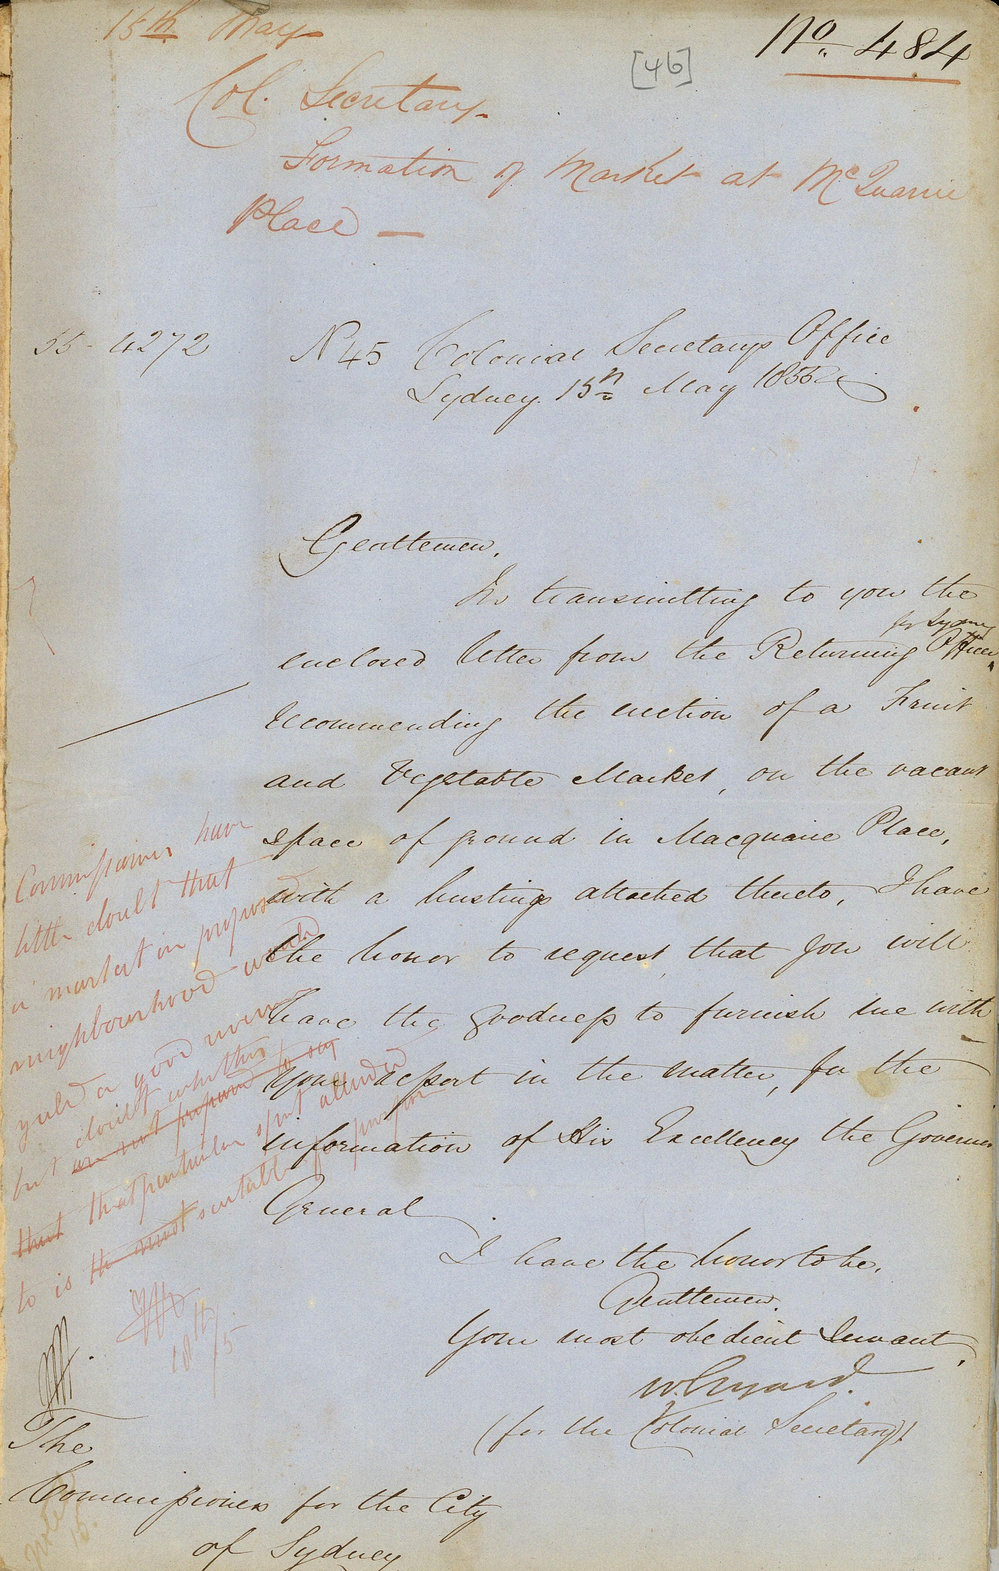 15th May
No. 484
[46]
Col. Secretary
Formation of Market at McQuarie
Place —
55-4272
N 45 Colonial Secretarys Office
Sydney 15th May 1855
Gentlemen,
In transmitting to you the
for Sydney
enclosed letter from the Returning Officer,
recommending the erection of a Fruit
and Vegetable Market, on the vacant
space of ground in Macquarie Place,
with a hustings attached thereto, I have
the honor to request that you will
have the goodness to furnish me with
your report in the matter, for the
information of His Excellency the Governor
General
I have the honor to be,
Gentlemen,
Your most obedient Servant,
(for the Colonial Secretary)
Commissioners have
little doubt that
a market in proposed
neighbourhood would
yield a good
doubt whether
but are not prepared to say
that that particular spot alluded
to is the most suitable for
18th/5
The
Commissioners for the City
of Sydney